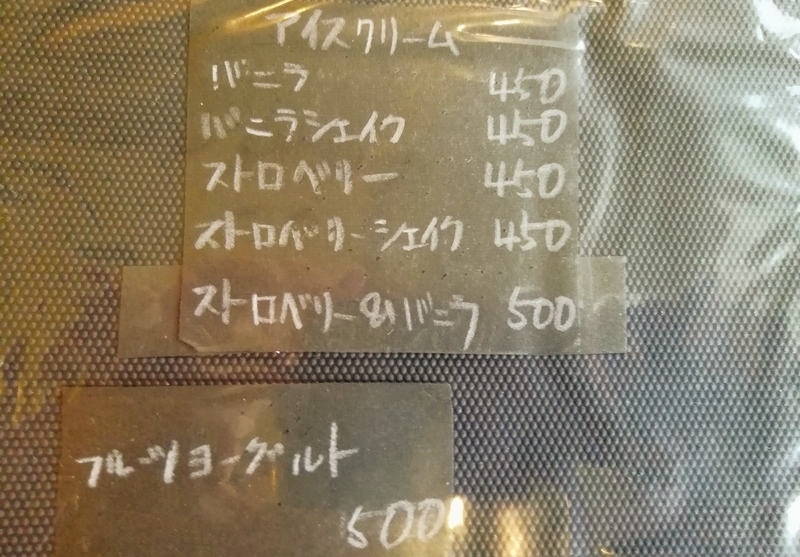 アイスクリーム
バニラ 450
バニラシェイク 450
ストロベリー 450
ストロベリーシェイク 450
ストロベリー&バニラ 500
フルーツヨーグルト
500